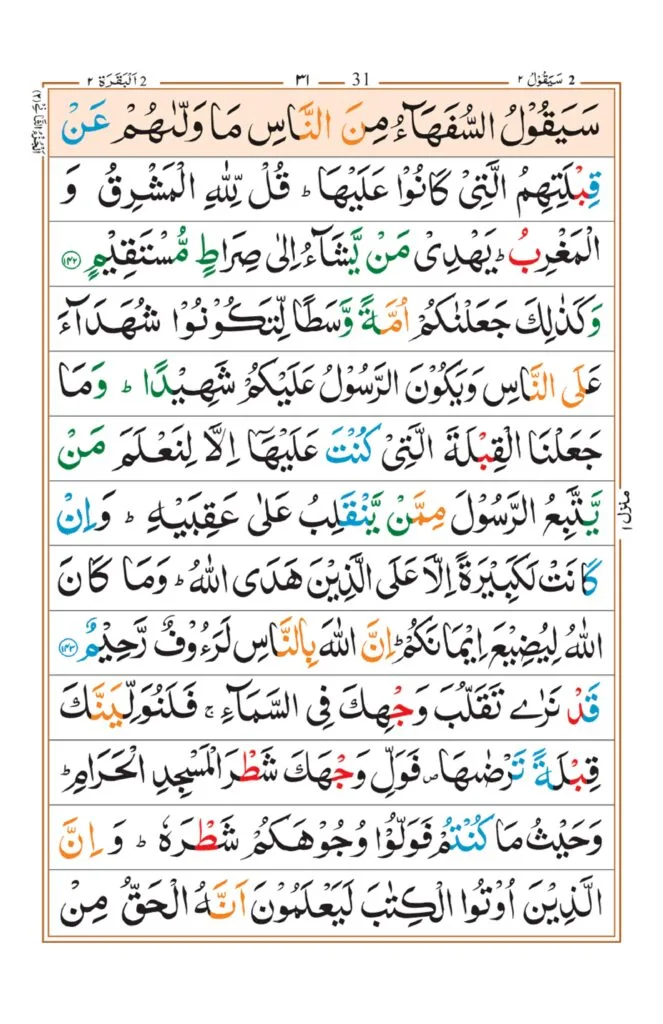 2 سَيَقُوْلُ ٢
31
٣١
2 اَلْبَقَرَة ٢
سَيَقُوْلُ السُّفَهَآءُ مِنَ النَّاسِ مَا وَلّٰىهُمْ عَنْ
قِبْلَتِهِمُ الَّتِىْ كَانُوْا عَلَيْهَا ؕ قُلْ لِّلّٰهِ الْمَشْرِقُ وَ
الْمَغْرِبُ ؕ يَهْدِىْ مَنْ يَّشَآءُ اِلٰى صِرَاطٍ مُّسْتَقِيْمٍ ﴿۱۴۲﴾
وَكَذٰلِكَ جَعَلْنٰكُمْ اُمَّةً وَّسَطًا لِّتَكُوْنُوْا شُهَدَآءَ
عَلَى النَّاسِ وَيَكُوْنَ الرَّسُوْلُ عَلَيْكُمْ شَهِيْدًا ؕ وَمَا
جَعَلْنَا الْقِبْلَةَ الَّتِىْ كُنْتَ عَلَيْهَآ اِلَّا لِنَعْلَمَ مَنْ
يَّتَّبِعُ الرَّسُوْلَ مِمَّنْ يَّنْقَلِبُ عَلٰى عَقِبَيْهِ ؕ وَاِنْ
كَانَتْ لَكَبِيْرَةً اِلَّا عَلَى الَّذِيْنَ هَدَى اللّٰهُ ؕ وَمَا كَانَ
اللّٰهُ لِيُضِيْعَ اِيْمَانَكُمْ ؕ اِنَّ اللّٰهَ بِالنَّاسِ لَرَءُوْفٌ رَّحِيْمٌ ﴿۱۴۳﴾
قَدْ نَرٰى تَقَلُّبَ وَجْهِكَ فِى السَّمَآءِ ۚ فَلَنُوَلِّيَنَّكَ
قِبْلَةً تَرْضٰىهَا ۪ فَوَلِّ وَجْهَكَ شَطْرَ الْمَسْجِدِ الْحَرَامِ ؕ
وَحَيْثُ مَا كُنْتُمْ فَوَلُّوْا وُجُوْهَكُمْ شَطْرَهٗ ؕ وَ اِنَّ
الَّذِيْنَ اُوْتُوا الْكِتٰبَ لَيَعْلَمُوْنَ اَنَّهُ الْحَقُّ مِنْ
منزل ١